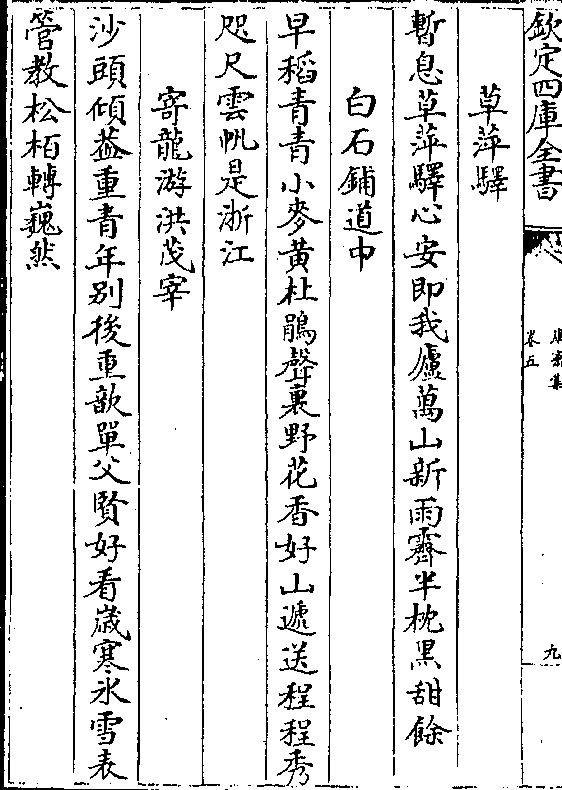 欽定四庫全書
卷五
九
草萍驛
暫息草萍驛心安即我廬萬山新雨霽半枕黑甜餘
白石鋪道中
早稻青青小麥黃杜鵑聲裏野花香好山遞送程程秀
咫尺雲帆是浙江
寄龍游洪茂宰
沙頭傾葢重青年别後重歆單父賢好看歳寒氷雪表
管教松栢轉巍然